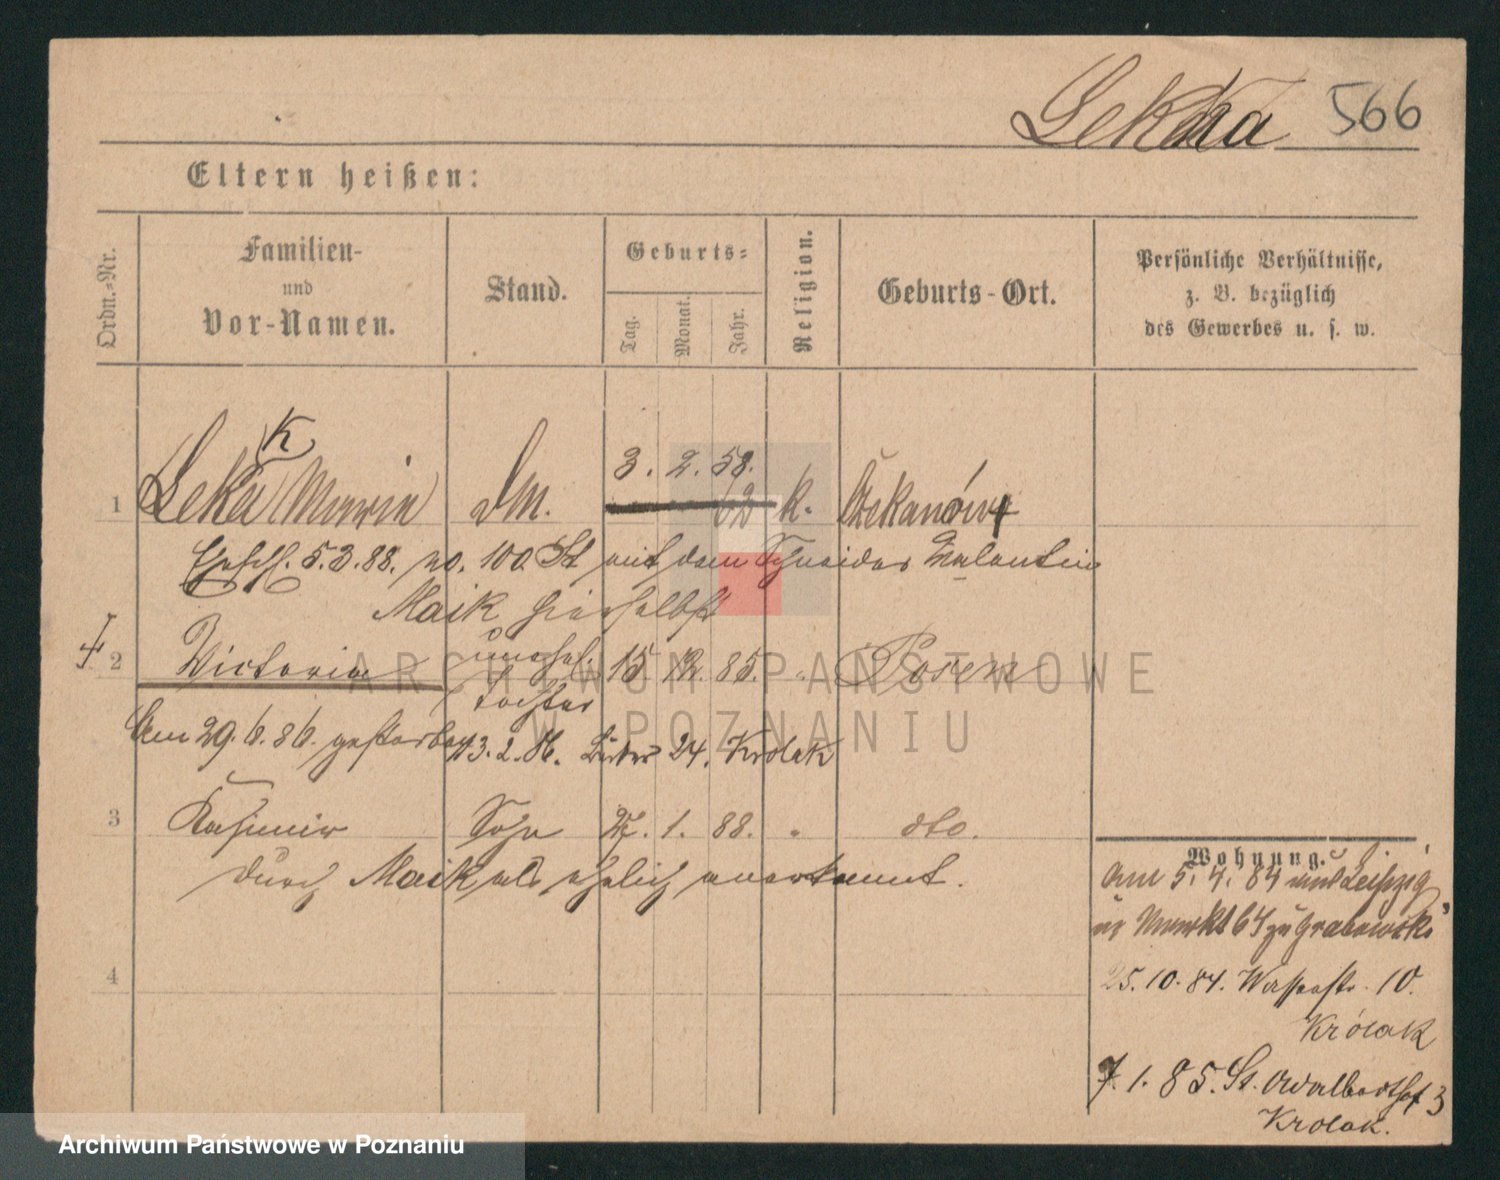 Lekka 566
Eltern heißen:
Ordn.-Nr.
Familien-
und
Vor-Namen.
Stand.
Geburts-
Tag.
Monat.
Jahr.
Religion.
Geburts-Ort.
Persönliche Verhältnisse,
z. B. bezüglich
des Gewerbes u. s. w.
k
3. 2. 58.
1 Leka Maria Dm. 62 k. Czekanów
Ehesch. 5.3.88. no. 100 St mit dem Schneider Valentin
Maik hierselbst
2 Victoria unehel. 15. 12. 85. " Posen
Tochter
Am 29. 6. 86. gestorben 13. 2. 86. 24. Krolak
3 Kasimir Sohn 27. 1. 88. " dto.
durch Maik als ehelich anerkannt.
4
Wohnung.
Am 5. 4. 84 aus Leipzig
Markt 64 zu Grabowski
25. 10. 84. Wasserstr. 10.
Królak
7. 1. 85. St. Adalbertstr 3
Krolak.
ARCHIWUM PAŃSTWOWE
W POZNANIU
Archiwum Państwowe w Poznaniu